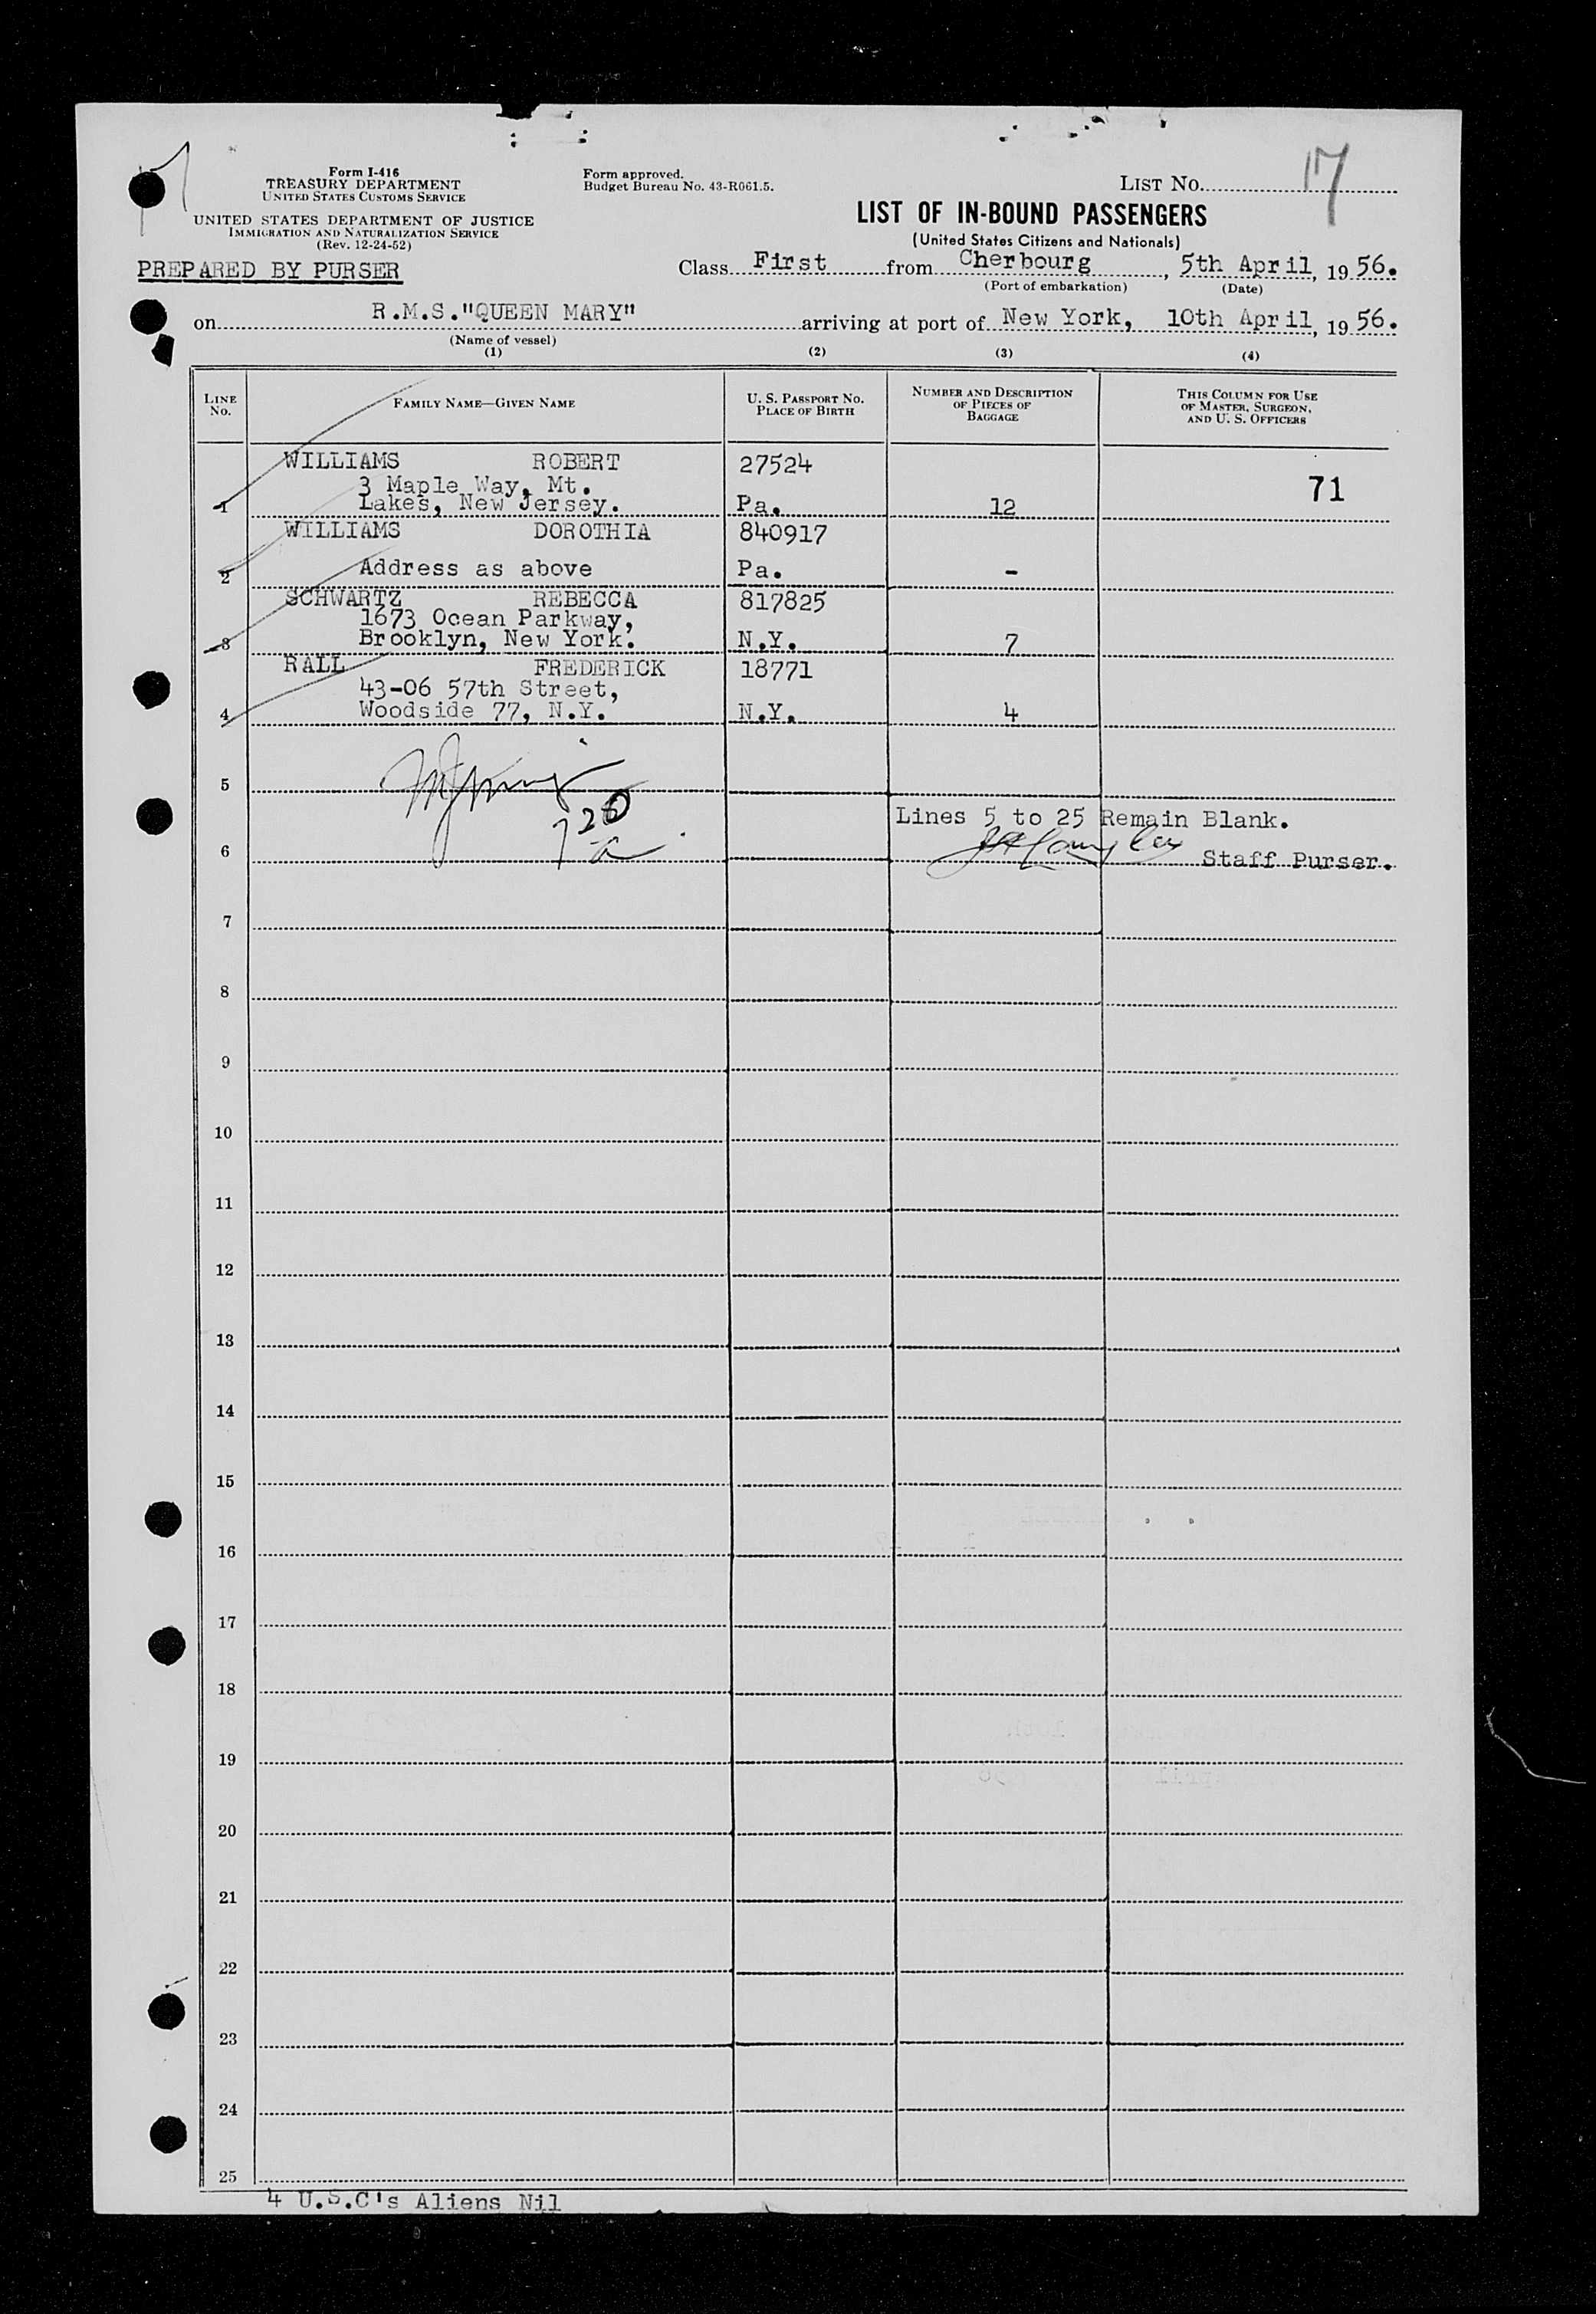 Form I-416
TREASURY DEPARTMENT
UNITED STATES CUSTOMS SERVICE
UNITED STATES DEPARTMENT OF JUSTICE
IMMIGRATION AND NATURALIZATION SERVICE
(Rev. 12-24-52)
PREPARED BY PURSER
Form approved.
Budget Bureau No. 43-R061.5.
LIST NO. 17
LIST OF IN-BOUND PASSENGERS
(United States Citizens and Nationals)
Class First from Cherbourg, 5th April, 1956.
(Port of embarkation) (Date)
on R.M.S."QUEEN MARY" arriving at port of New York, 10th April, 1956.
(Name of vessel)
(1) (2) (3) (4)
LINE NO. FAMILY NAME—GIVEN NAME U. S. PASSPORT NO. PLACE OF BIRTH NUMBER AND DESCRIPTION OF PIECES OF BAGGAGE THIS COLUMN FOR USE OF MASTER, SURGEON, AND U. S. OFFICERS
WILLIAMS ROBERT 27524
3 Maple Way, Mt. 71
1 Lakes, New Jersey. Pa. 12
WILLIAMS DOROTHIA 840917
2 Address as above Pa. -
SCHWARTZ REBECCA 817825
1673 Ocean Parkway,
3 Brooklyn, New York. N.Y. 7
RALL FREDERICK 18771
43-06 57th Street,
4 Woodside 77, N.Y. N.Y. 4
5
Lines 5 to 25 Remain Blank.
720
6 Staff Purser.
7
8
9
10
11
12
13
14
15
16
17
18
19
20
21
22
23
24
25
4 U.S.C's Aliens Nil